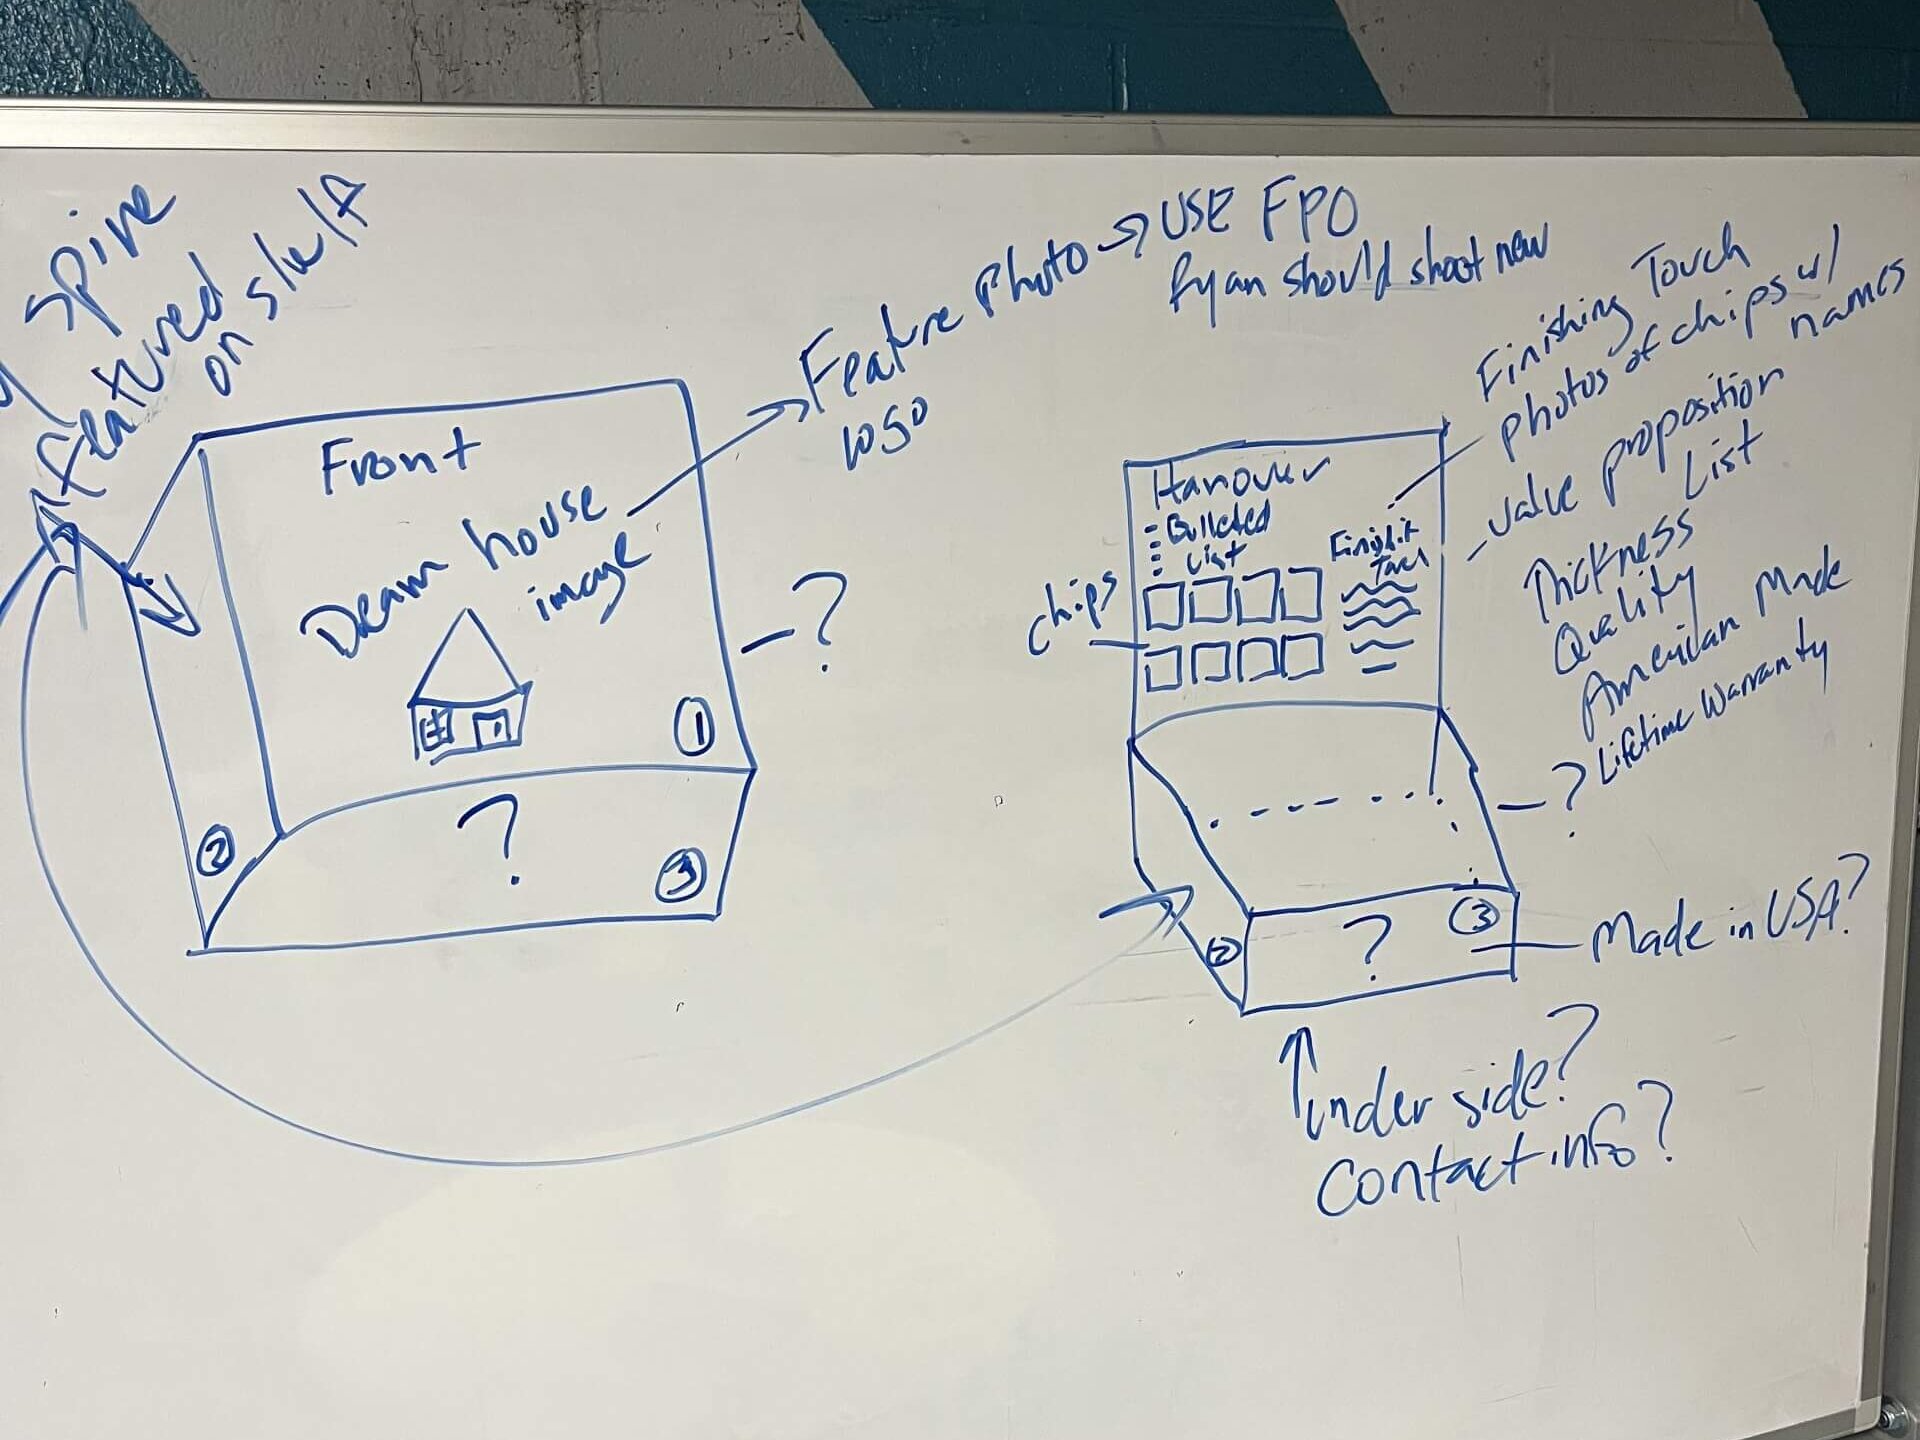 Spine
featured
on shelf
Front
Dream house
image
①
②
?
③
?
Feature Photo → USE FPO
Ryan should shoot new
logo
Finishing Touch
photos of chips w/
names
value proposition
List
Thickness
Quality
American Made
Lifetime Warranty
Hanover
- Bulleted
List
Finish.it
chips
?
②
?
③
Made in USA?
under side?
Contact info?